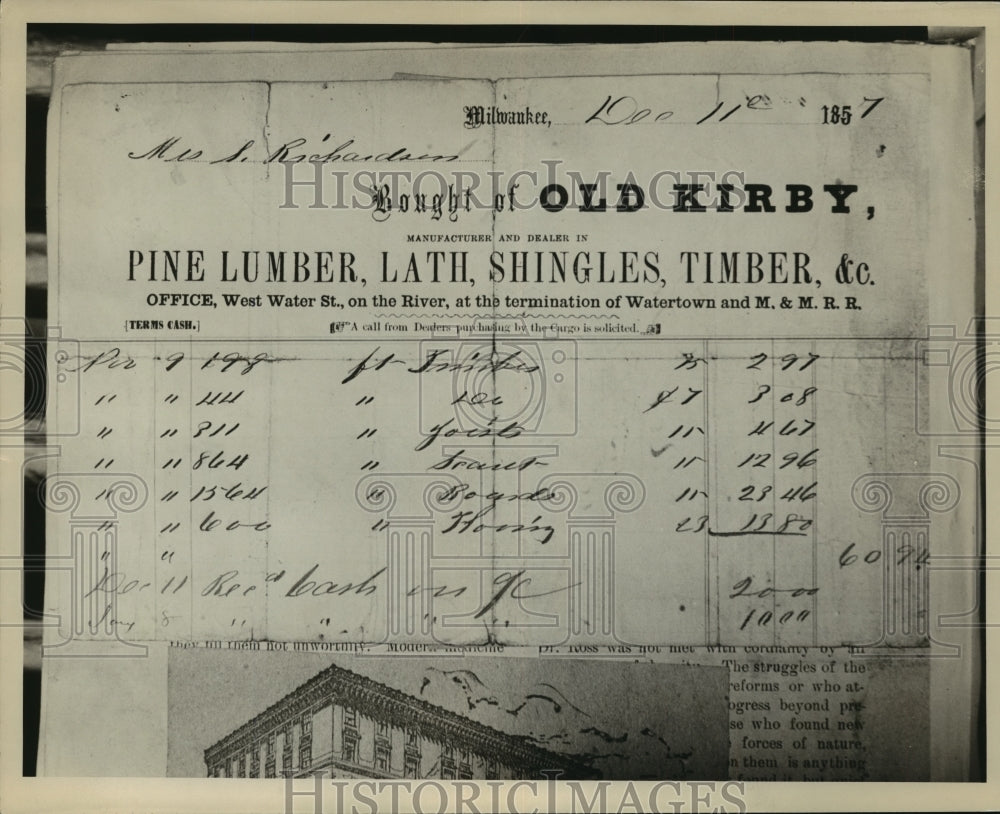 Milwaukee, Dec 11 1857
Mrs S. Richardson
Bought of OLD KIRBY,
MANUFACTURER AND DEALER IN
PINE LUMBER, LATH, SHINGLES, TIMBER, &c.
OFFICE, West Water St., on the River, at the termination of Watertown and M. & M. R. R.
[TERMS CASH.] A call from Dealers purchasing by the Cargo is solicited.
9 198 ft 15 2 97
" " 44 " Do 3 08
" " 311 " Joists 15 4 67
" " 864 " Scant 15 12 96
" " 1564 " Boards 15 23 46
" " 600 " 23 13 80
" " 60 94
Dec 11 Rec'd Cash on a/c 20 00
8 " " " " 10 00
they fill them not unworthily. Modern medicine
Dr. Ross was not met with cordiality by all
The struggles of the
reforms or who at-
ogress beyond pre-
se who found new
forces of nature,
n them is anything
HISTORICIMAGES
HISTORICIMAGES